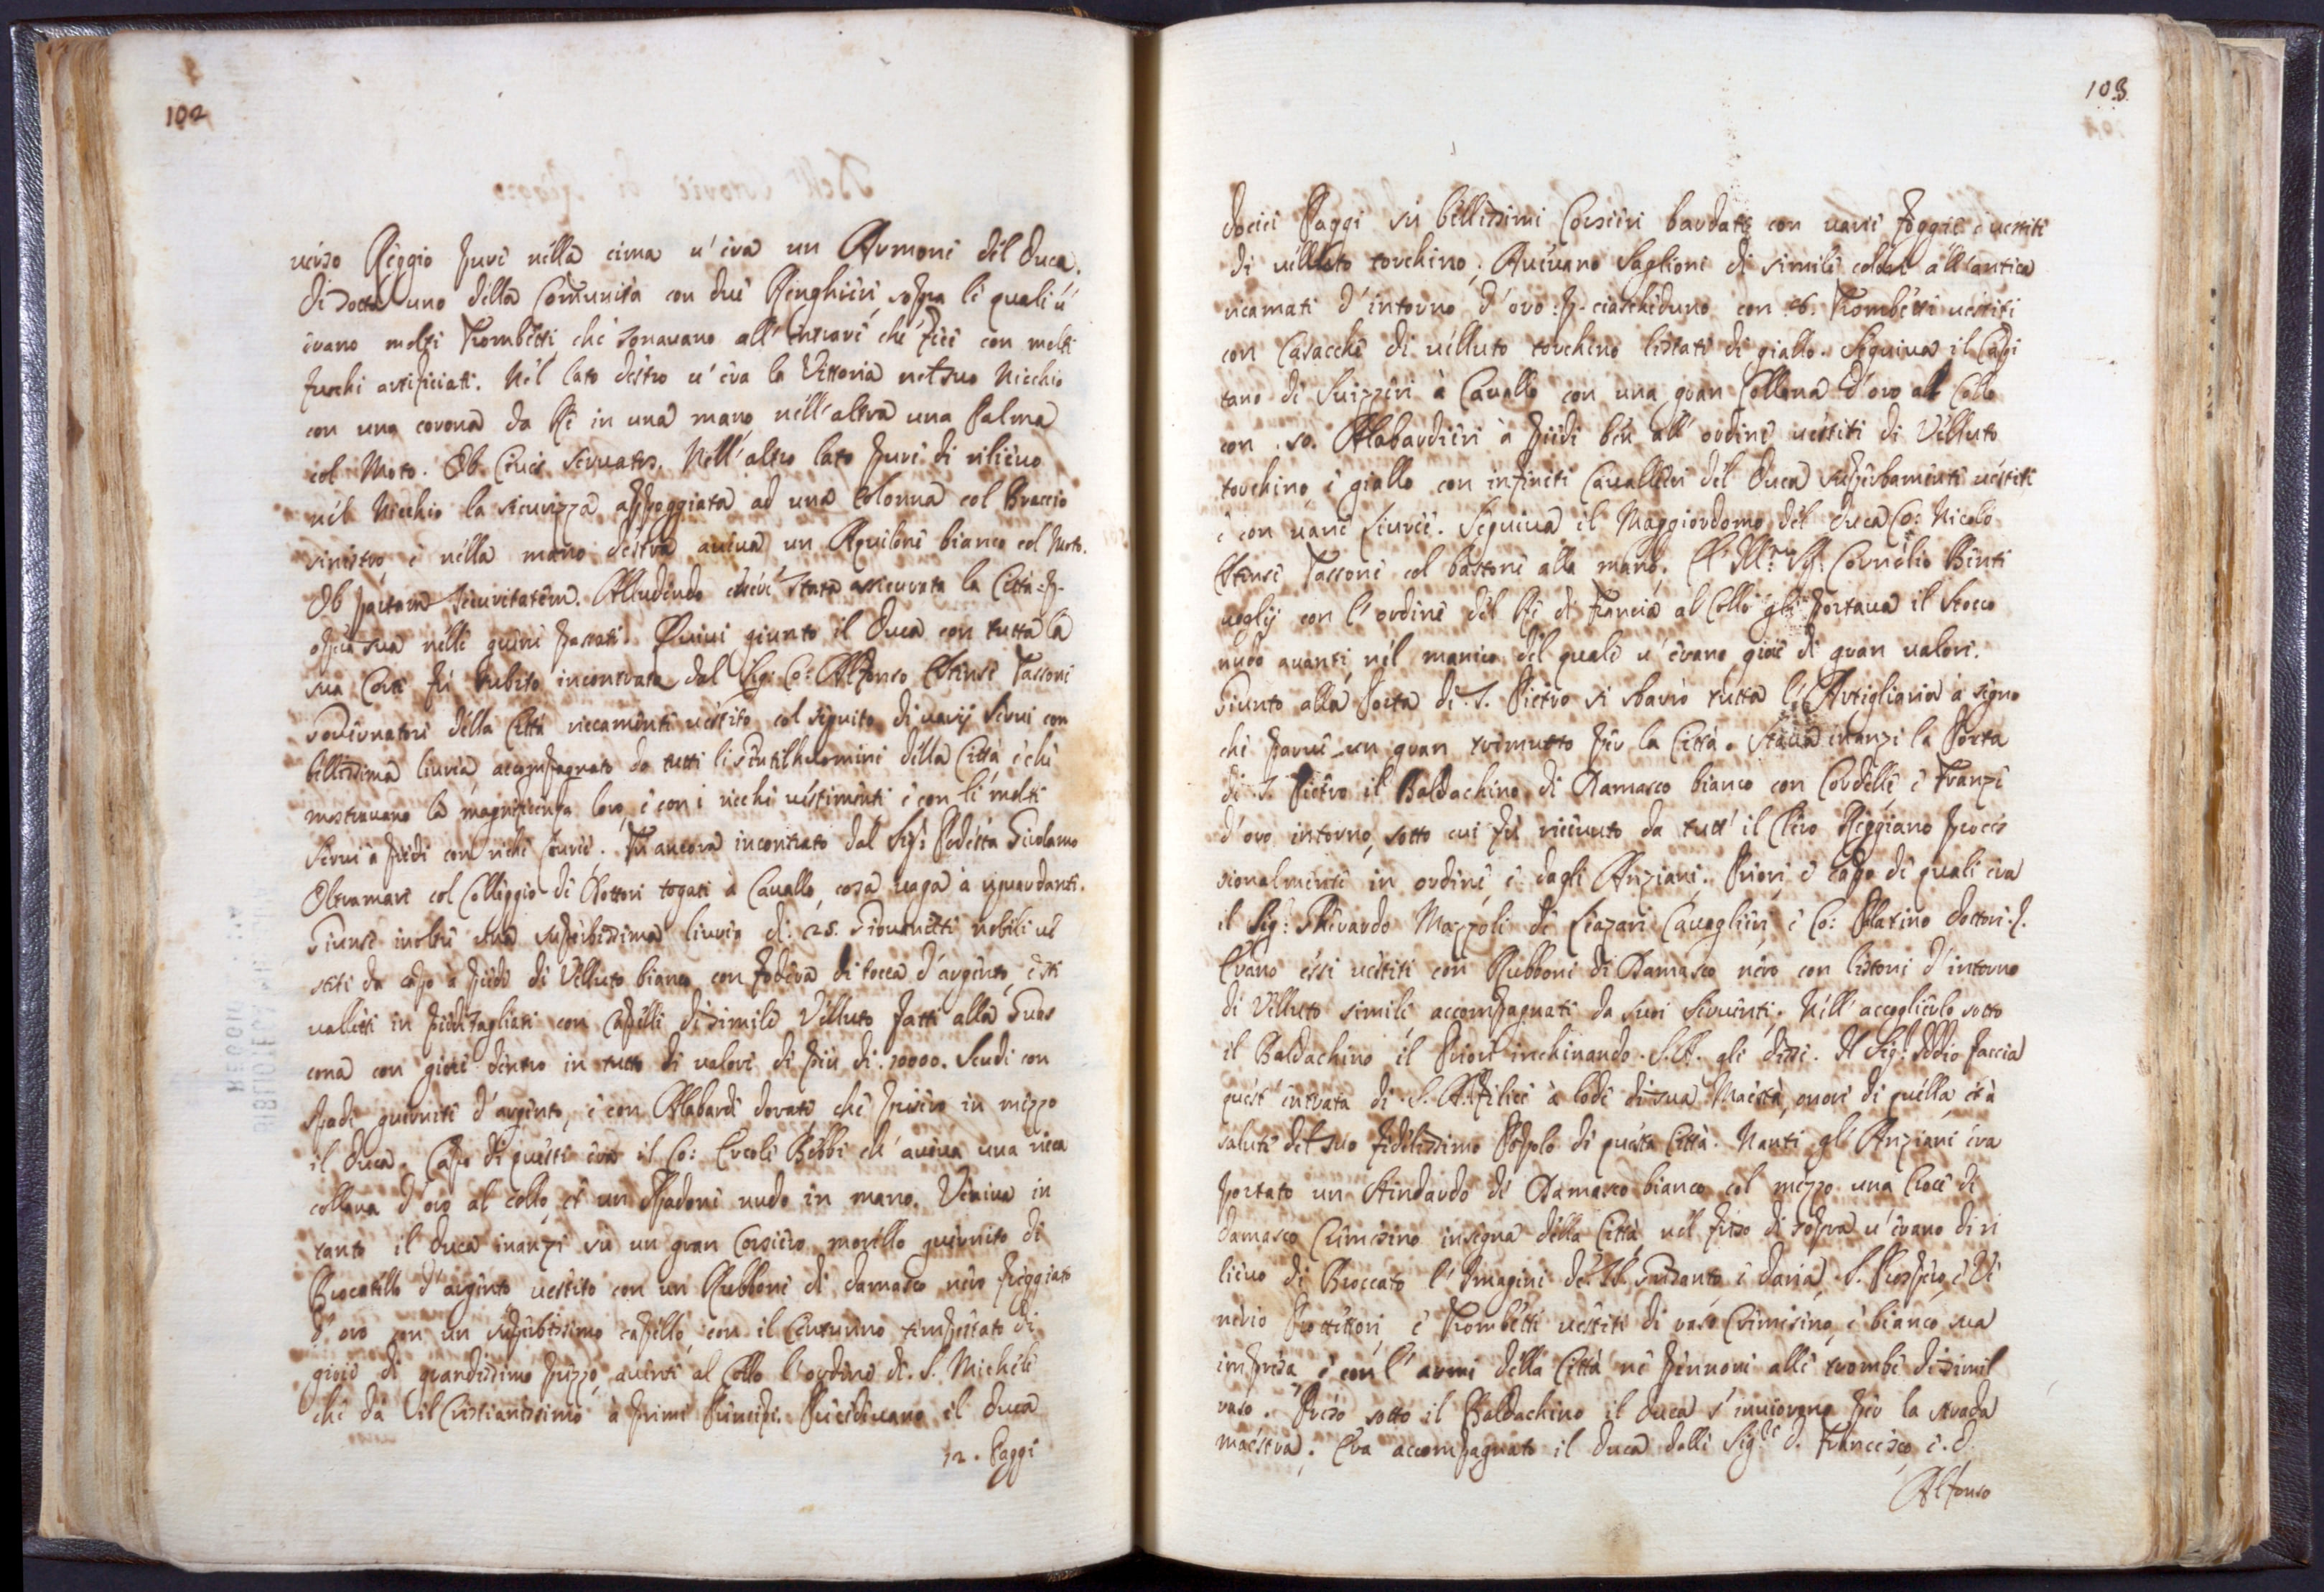 102
verso Reggio pure nella cima v'era un Armone del Duca.
di sotto uno della Comunità con due Renghiere, sopra le quali v'
erano molti Trombetti che sonavano all'intrare che fece con molti
fuochi artificiati. Nel lato destro v'era la Vittoria nel suo Nicchio
con una corona da Re in una mano nell'altra una Palma
col Moto. Ob Cives servatos. Nell'altro lato pure di rilievo
nel Nicchio la sicurezza appoggiata ad una Colonna col Braccio
sinistro, e nella mano destra aveva un Aquilone bianco col Moto.
Ob partam securitatem. Alludendo essere stata assicurata la Città p.
opera sua nelle guerre passate. Quivi giunto il Duca con tutta la
sua Corte fù subito incontrato dal Sig: Co: Alfonso Estense Tassoni
Governatore della Città riccamente vestito col seguito di varij servi con
bellissima livrea accompagnato da tutti li Gentilhuomini della Città e che
mostravano la magnificenza loro, e con i ricchi vestimenti e con li molti
servi à piedi con riche livree. Fù ancora incontrato dal Sig: Podestà Girolamo
Oltramari col Colleggio de Dottori togati à Cavallo, cosa vaga à riguardanti.
Giunse inoltre una superbissima livrea di. 25. Giovenetti nobili ve
stiti da capo à piedi di Velluto bianco con fodera di tocca d'argento, e sti
valletti in piedi tagliati con Capelli di simile Velluto fatti alla Guas
cona con gioie dentro in tutto di valore di più di. 10000. Scudi con
spade guernite d'argento, e con Alabarde dorate, che presero in mezzo
il Duca. Capo di questi era il Co: Ercole Bebbi ch'aveva una ricca
collana d'oro al collo, et un Spadone nudo in mano. Veniva in
tanto il Duca inanzi sù un gran Corsiero morello guernito di
Brocatello d'argento vestito con un Rubbone di damasco nero freggiato
d'oro con un superbissimo capello, con il Centurino tempestato di
gioie di grandissimo prezzo, avente al Collo l'ordine di. S. Michele
che dà il Cristianissimo à primi Principi. Precedevano il Duca
12. Paggi
103
dodici Paggi sù bellissimi Corsieri bardati con varie foggie e vestiti
di velluto torchino. Avevano Saglioni di simile colore all'antica
ricamati d'intorno d'oro. p. ciascheduno con .6. Trombetti vestiti
con Casacche di velluto torchino listate di giallo. Seguiva il Capi
tano di Suizzeri à Cavallo con una gran Collana d'oro al Collo
con .50. Alabardieri à piedi ben all'ordine vestiti di Velluto
torchino e giallo con infiniti Cavallieri del Duca superbamente vestiti
e con varie livree. Seguiva il Maggiordomo del Duca Co: Nicolò
Estense Tassoni col bastone alla mano. Sig: Cornelio Benti
voglij con l'ordine del Re di Francia al Collo gli portava il stocco
nudo avanti, nel manico del quale v'erano gioie di gran valore.
Giunto alla Porta di. S. Pietro si sbarò tutta l'Artiglieria à segno
che parve un gran tremuoto per la Città. Stava inanzi la Porta
di S. Pietro il Baldachino di Damasco bianco con Cordelle, e Franze
d'oro intorno, sotto cui fù ricevuto da tutt'il Clero Reggiano proces
sionalmente in ordine e dagli Anziani. Priore, e capo de quali era
il Sig: Gherardo Mazzoli de Leazari Cavagliere, e Co: Platino Dottore. p.
Erano essi vestiti con Rubboni di Damasco nero con listoni d'intorno
di Velluto simile accompagnati da suoi serventi. Nell'accoglierlo sotto
il Baldachino il Priore inchinando. S. A. gli disse. Il Sig: Iddio faccia
quest'entrata di. S. A. felice à lode di sua Maestà, onore di quella, et à
salute del suo fidelissimo Popolo di questa Città. Nanti gl'Anziani era
portato un Stendardo di Damasco bianco col mezzo una Croce di
damasco Cremesino insegna della Città, nel friso di sopra v'erano di ri
lievo di Broccato l'Imagine de. SS. Grisanto, e Daria. S. Prospero, e Ve
nerio Protettori, e Trombetti vestiti di raso Cremesino, e bianco sua
impresa, e con l'arme della Città ne pennoni alle trombe di simil
raso. Preso sotto il Baldachino il Duca s'inviorono per la strada
maestra. Era accompagnato il Duca dalli Sig.ri D. Francesco, e. D.
Alfonso